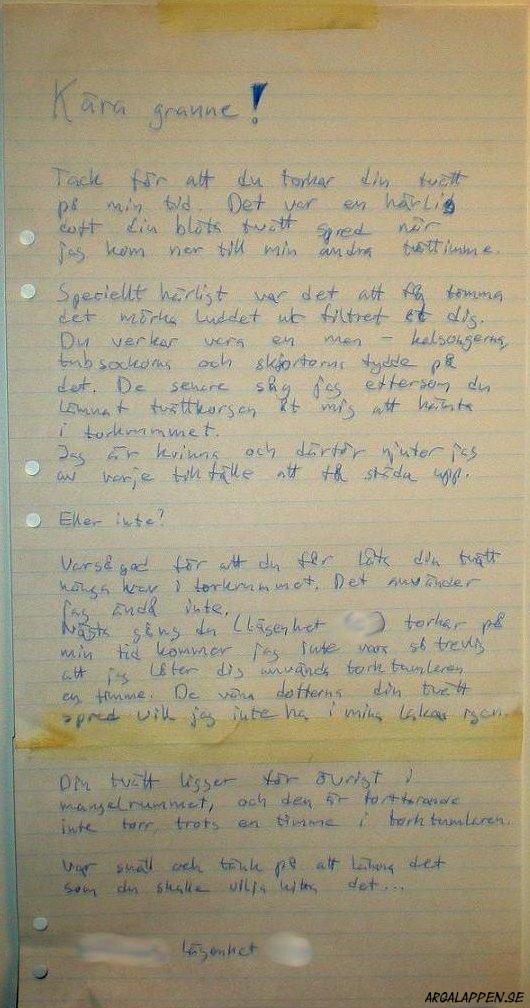 Kära granne!
Tack för att du torkar din tvätt
på min tid. Det var en härlig
doft din blöta tvätt spred när
jag kom ner till min andra tvättimme.
Speciellt härligt var det att få tömma
det mörka luddet ut filtret åt dig.
Du verkar vara en man - kalsongerna,
tubsockorna och skjortorna tydde på
det. De senare såg jag eftersom du
lämnat tvättkorgen åt mig att hämta
i torkrummet.
Jag är kvinna och därför njuter jag
av varje tillfälle att få städa upp.
Eller inte?
Varsågod för att du får låta din tvätt
hänga kvar i torkrummet. Det använder
jag ändå inte.
Nästa gång du (lägenhet ) torkar på
min tid kommer jag inte vara så trevlig
att jag låter dig använda torktumlaren
en timme. De våna dofterna din tvätt
spred vill jag inte ha i mina lakan igen.
Din tvätt ligger för övrigt i
mangelrummet, och den är fortfarande
inte torr, trots en timme i torktumlaren.
Var snäll och tänk på att lämna det
som du skulle vilja hitta det...
lägenhet
ARGALAPPEN.SE